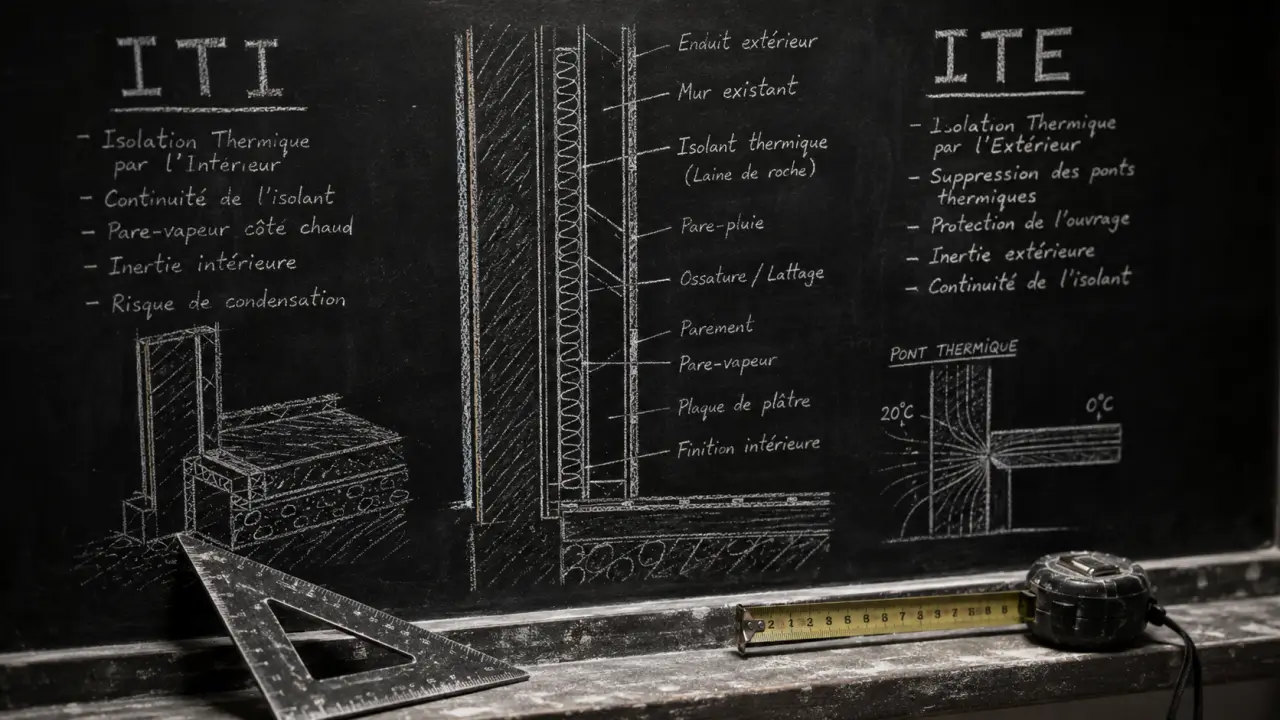 ITI
- Isolation Thermique
par l'Intérieur
- Continuité de l'isolant
- Pare-vapeur côté chaud
- Inertie intérieure
- Risque de condensation
Enduit extérieur
Mur existant
Isolant thermique
(Laine de roche)
Pare-pluie
Ossature / Lattage
Parement
Pare-vapeur
Plaque de plâtre
Finition intérieure
ITE
- Isolation Thermique
par l'Extérieur
- Suppression des ponts
thermiques
- Protection de l'ouvrage
- Inertie extérieure
- Continuité de l'isolant
PONT THERMIQUE
20°C
0°C